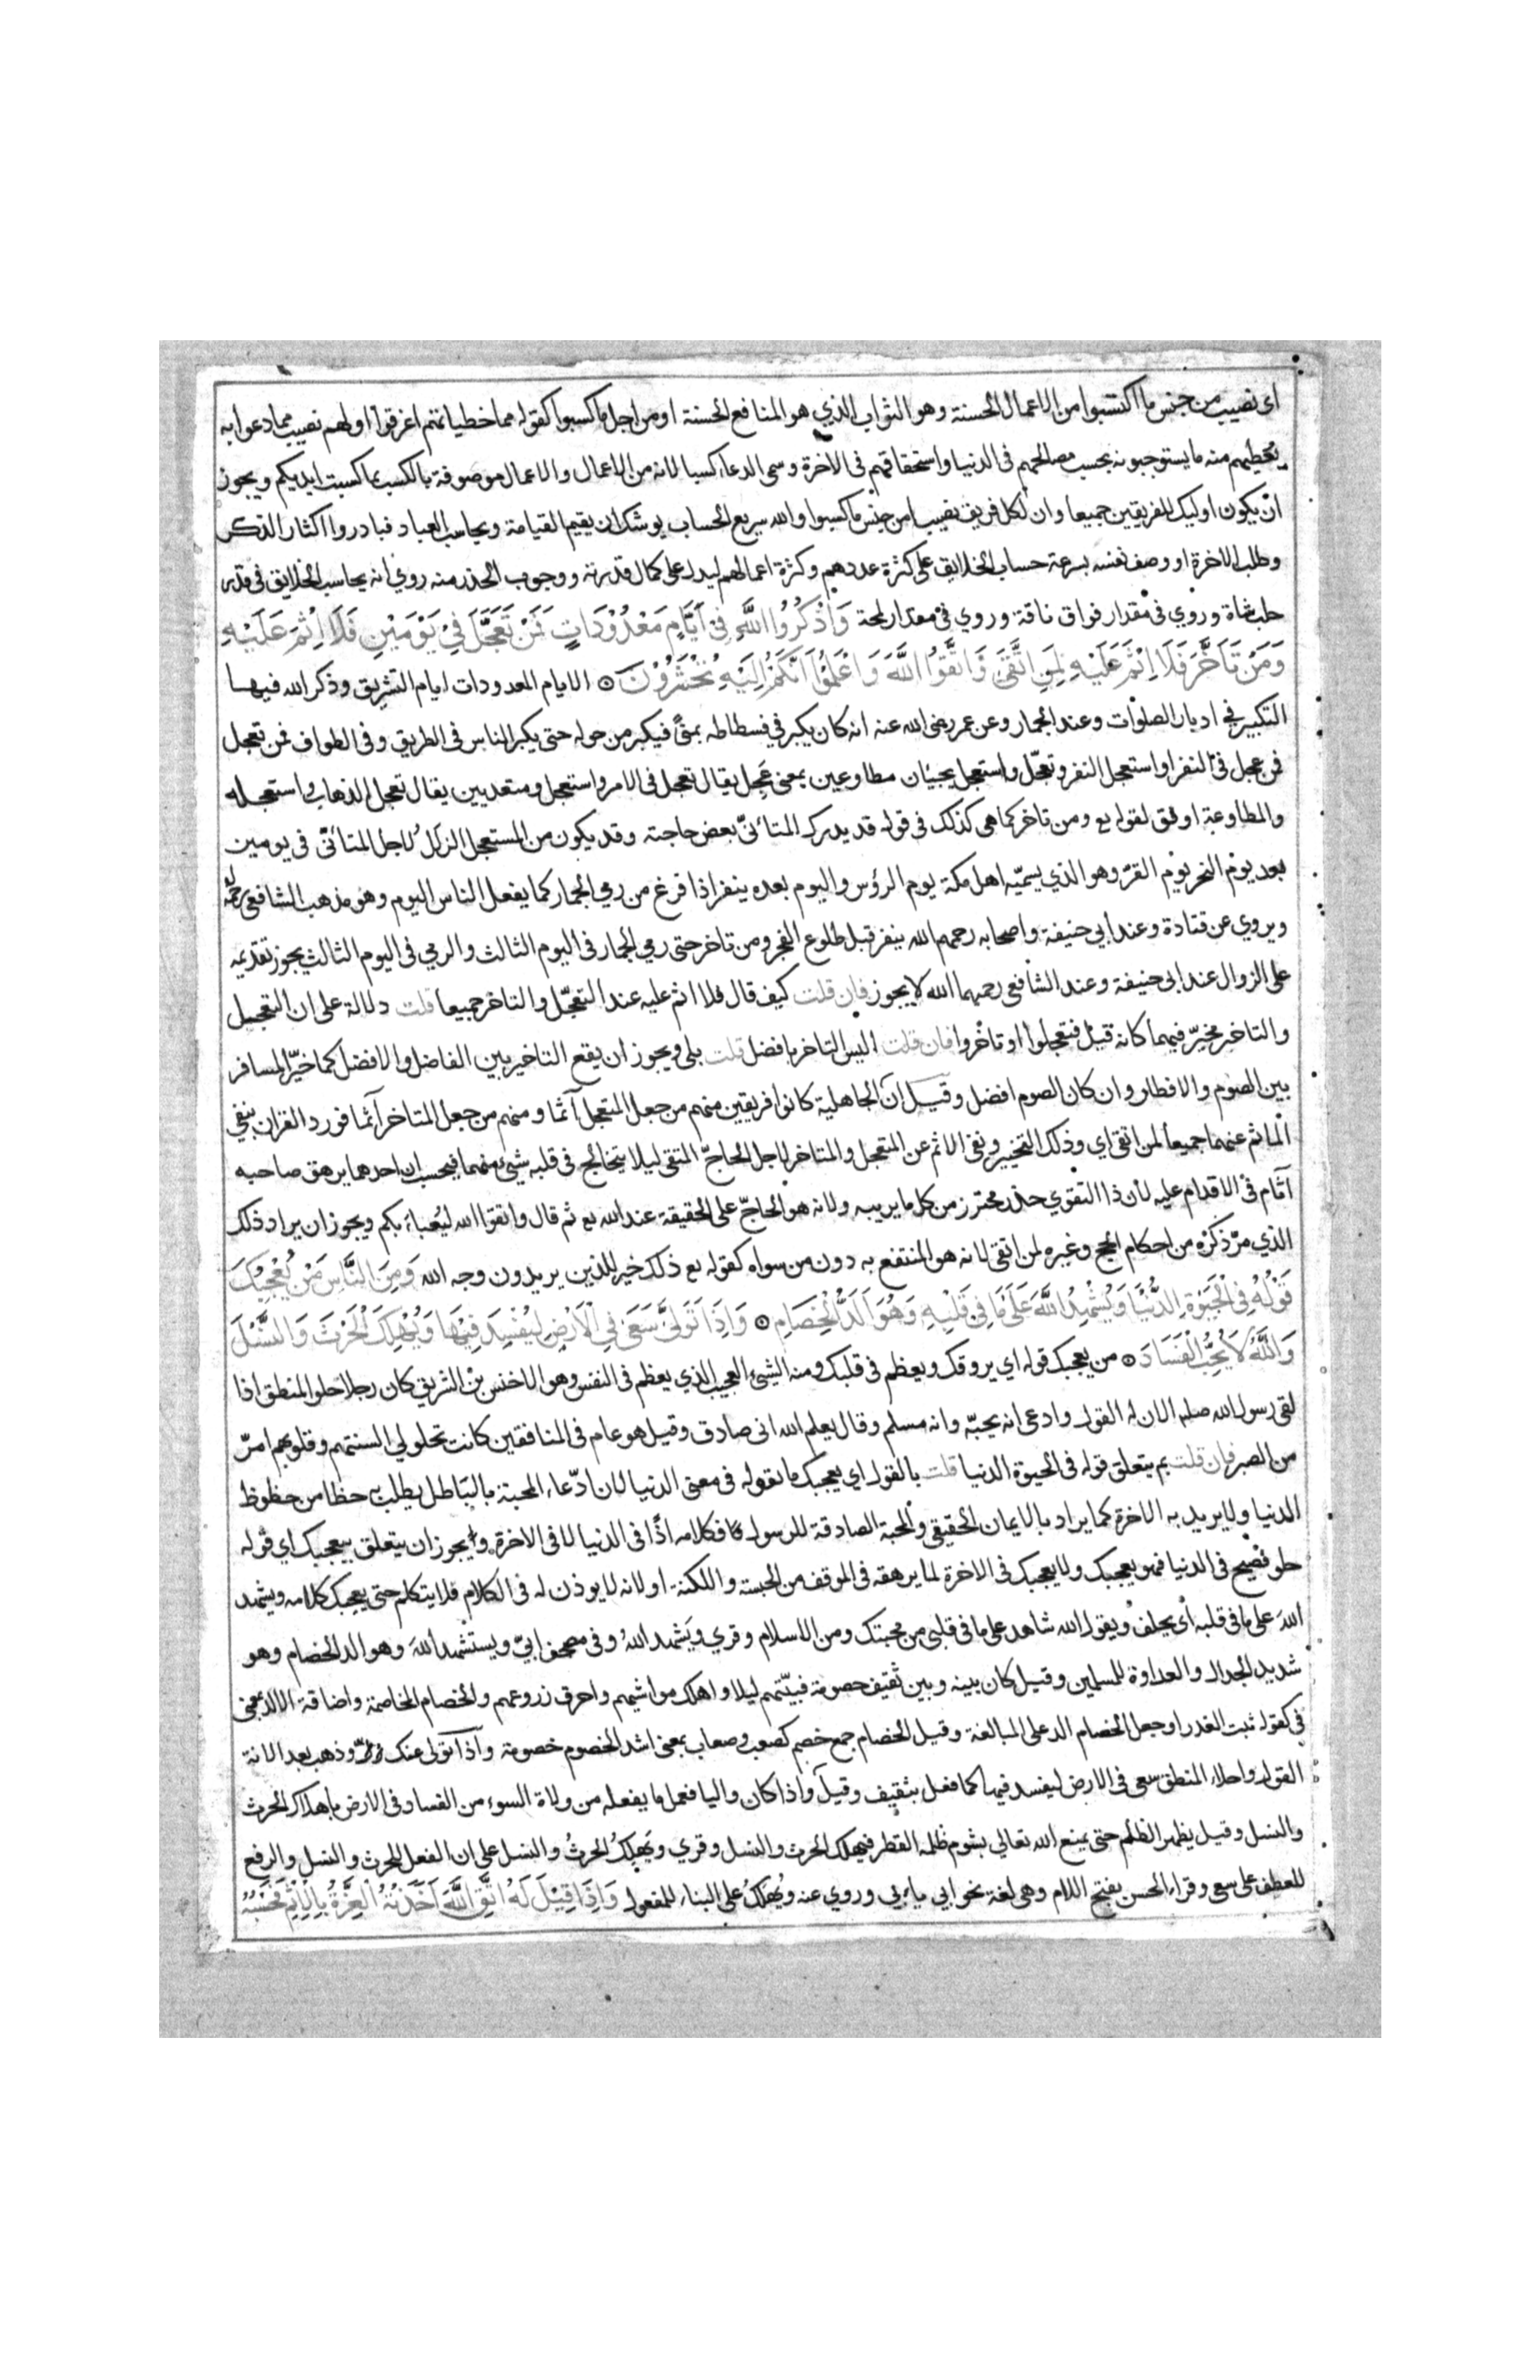 اى نصيب من جنس ما اكتسبوا من الاعمال الحسنة وهو الثواب الذي هو المنافع الحسنة او من اجل ما كسبوا كقوله مما خطياتهم اغرقوا او لهم نصيب مما دعوا به
يعطيهم منه ما يستوجبونه بحسب مصالحهم فى الدنيا واستحقاقهم فى الاخرة وسمى الدعاء كسبا لانه من الاعمال والاعمال موصوفة بالكسب بما كسبت ايديكم ويجوز
ان يكون اوليك للفريقين جميعا وان لكل فريق نصيبا من جنس ما كسبوا والله سريع الحساب يوشك ان يقيم القيامة ويحاسب العباد فبادروا اكثار الذكر
وطلب الاخرة او وصف نفسه بسرعة حساب الخلايق على كثرة عددهم وكثرة اعمالهم ليدل على كمال قدرته ووجوب الحذر منه روي انه يحاسب الخلايق فى قدر
حلب شاة وروي فى مقدار فواق ناقة وروي فى مقدار لمحة وَاذْكُرُوا اللَّهَ فِى اَيَّامٍ مَعْدُوْدَاتٍ فَمَنْ تَعَجَّلَ فِيْ يَوْمَيْنِ فَلَا اِثْمَ عَلَيْهِ
وَمَنْ تَاَخَّرَ فَلَا اِثْمَ عَلَيْهِ لِمَنِ اتَّقَى وَاتَّقُوا اللَّهَ وَاعْلَمُوْا اَنَّكُمْ اِلَيْهِ تُحْشَرُوْنَ ۞ الايام المعدودات ايام التشريق وذكر الله فيها
التكبير في ادبار الصلوات وعند الجمار وعن عمر رضى الله عنه انه كان يكبر في فسطاطه بمنًى فيكبر من حوله حتى يكبر الناس فى الطريق وفى الطواف فمن تعجل
فمن عجل فى النفر او استعجل النفر وتعجّل واستعجل يجيئان مطاوعين بمعنى عَجِل يقال تعجل فى الامر واستعجل ومتعديين يقال تعجل الذهاب واستعجله
والمطاوعة اوفق لقوله تع ومن تاخر كما هى كذلك فى قوله قد يدرك المتانىّ بعض حاجته وقد يكون من المستعجل الزلل لاجل المتانّى فى يومين
بعد يوم النحر يوم القرّ وهو الذي يسميّه اهل مكة يوم الرؤس واليوم بعده ينفر اذا فرغ من رمي الجمار كما يفعل الناس اليوم وهو مذهب الشافعى
ويروي عن قتادة وعند ابي حنيفة واصحابه رحمهم الله ينفر قبل طلوع الفجر ومن تاخر حتى رمي الجمار فى اليوم الثالث والرمي فى اليوم الثالث يجوز تقديمه
على الزوال عند ابى حنيفة وعند الشافعى رحمهما الله لا يجوز فان قلت كيف قال فلا اثم عليه عند التعجّل والتاخر جميعا قلت دلالة على ان التعجيل
والتاخير مخيّر فيهما كانه قيل فتعجلوا او تاخروا فان قلت اليس التاخر بافضل قلت بلى ويجوز ان يقع التاخير بين الفاضل والافضل كما خيّر المسافر
بين الصوم والافطار وان كان الصوم افضل وقيل انّ الجاهلية كانوا فريقين منهم من جعل المتعجل آثما ومنهم من جعل المتاخر آثما فورد القران بنفي
الماثم عنهما جميعا لمن اتقى اي وذلك التخيير ونفى الاثم عن المتعجل والمتاخر لاجل الحاجّ المتقى ليلا يتخالج فى قلبه شىء منهما فيحسب ان احدهما يرهق صاحبه
آثام فى الاقدام عليه لان ذا التقوي حذر محترز من كل ما يريبه ولانه هو الحاجّ على الحقيقة عند الله تع ثم قال واتقوا الله ليُعبأ بكم ويجوز ان يراد ذلك
الذي مرّ ذكره من احكام الحج وغيره لمن اتقى لانه هو المنتفع به دون من سواه كقوله تع ذلك خير للذين يريدون وجه الله وَمِنَ النَّاسِ مَنْ يُعْجِبُكَ
قَوْلُهُ فِى الْحَيَوةِ الدُّنْيَا وَيُشْهِدُ اللَّهَ عَلَى مَا فِى قَلْبِهِ وَهُوَ اَلَدُّ الْخِصَامِ ۞ وَاِذَا تَوَلَّى سَعَى فِي الْاَرْضِ لِيُفْسِدَ فِيْهَا وَيُهْلِكَ الْحَرْثَ وَالنَّسْلَ
وَاللَّهُ لَا يُحِبُّ الْفَسَادَ ۞ من يعجبك قوله اي يروقك ويعظم فى قلبك ومنه الشىء العجيب الذي يعظم فى النفس وهو الاخنس بن الشريق كان رجلا حلو المنطق اذا
لقى رسول الله صلم الان له القول وادعى انه يحبّه وانه مسلم وقال يعلم الله انى صادق وقيل هو عام فى المنافقين كانت تحلولي السنتهم وقلوبهم امرّ
من الصبر فان قلت بم يتعلق قوله فى الحيوة الدنيا قلت بالقول اي يعجبك ما يقوله فى معنى الدنيا لان ادّعاء المحبة بالباطل يطلب به حظا من حظوظ
الدنيا ولا يريد به الاخرة كما يراد بالايمان الحقيقى والمحبة الصادقة للرسول فكلامه اذًا فى الدنيا لا فى الاخرة ويجوز ان يتعلق بيعجبك اي قوله
حلو فصيح فى الدنيا فهو يعجبك ولا يعجبك فى الاخرة لما يرهقه فى الموقف من الحبسة واللكنة او لانه لا يوذن له فى الكلام فلا يتكلم حتى يعجبك كلامه ويشهد
اللهَ على ما فى قلبه أى يحلف ويقول الله شاهد على ما فى قلبى من محبتك ومن الاسلام وقري ويَشهد اللهُ وفى مصحف ابيّ ويستشهد اللهَ وهو الد الخصام وهو
شديد الجدال والعداوة للمسلمين وقيل كان بينه وبين ثقيف خصومة فبيّتهم ليلا واهلك مواشيهم واحرق زروعهم والخصام المخاصمة واضافة الالد بمعنى
فى كقوله ثبت الغدر او جعل الخصام الد على المبالغة وقيل الخصام جمع خصم كصعب وصعاب بمعنى اشد الخصوم خصومة واذا تولى عنك وذهب بعد الانة
القول واحلاء المنطق سعى فى الارض ليفسد فيها كما فعل بثقيف وقيل واذا كان واليا فعل ما يفعله من ولاة السوء من الفساد فى الارض باهلاك الحرث
والنسل وقيل يظهر الظلم حتى يمنع الله تعالي بشوم ظلمه القطر فيهلك الحرث والنسل وقري ويَهلِكُ الحرثُ والنسل على ان الفعل للحرث والنسل والرفع
للعطف على سعى وقراء الحسن بفتح اللام وهى لغة نحو ابي يابى وروي عنه ويُهْلَكُ على البناء للمفعول وَاِذَا قِيْلَ لَهُ اتَّقِ اللَّهَ اَخَذَتْهُ الْعِزَّةُ بِالْاِثْمِ فَحَسْبُهُ